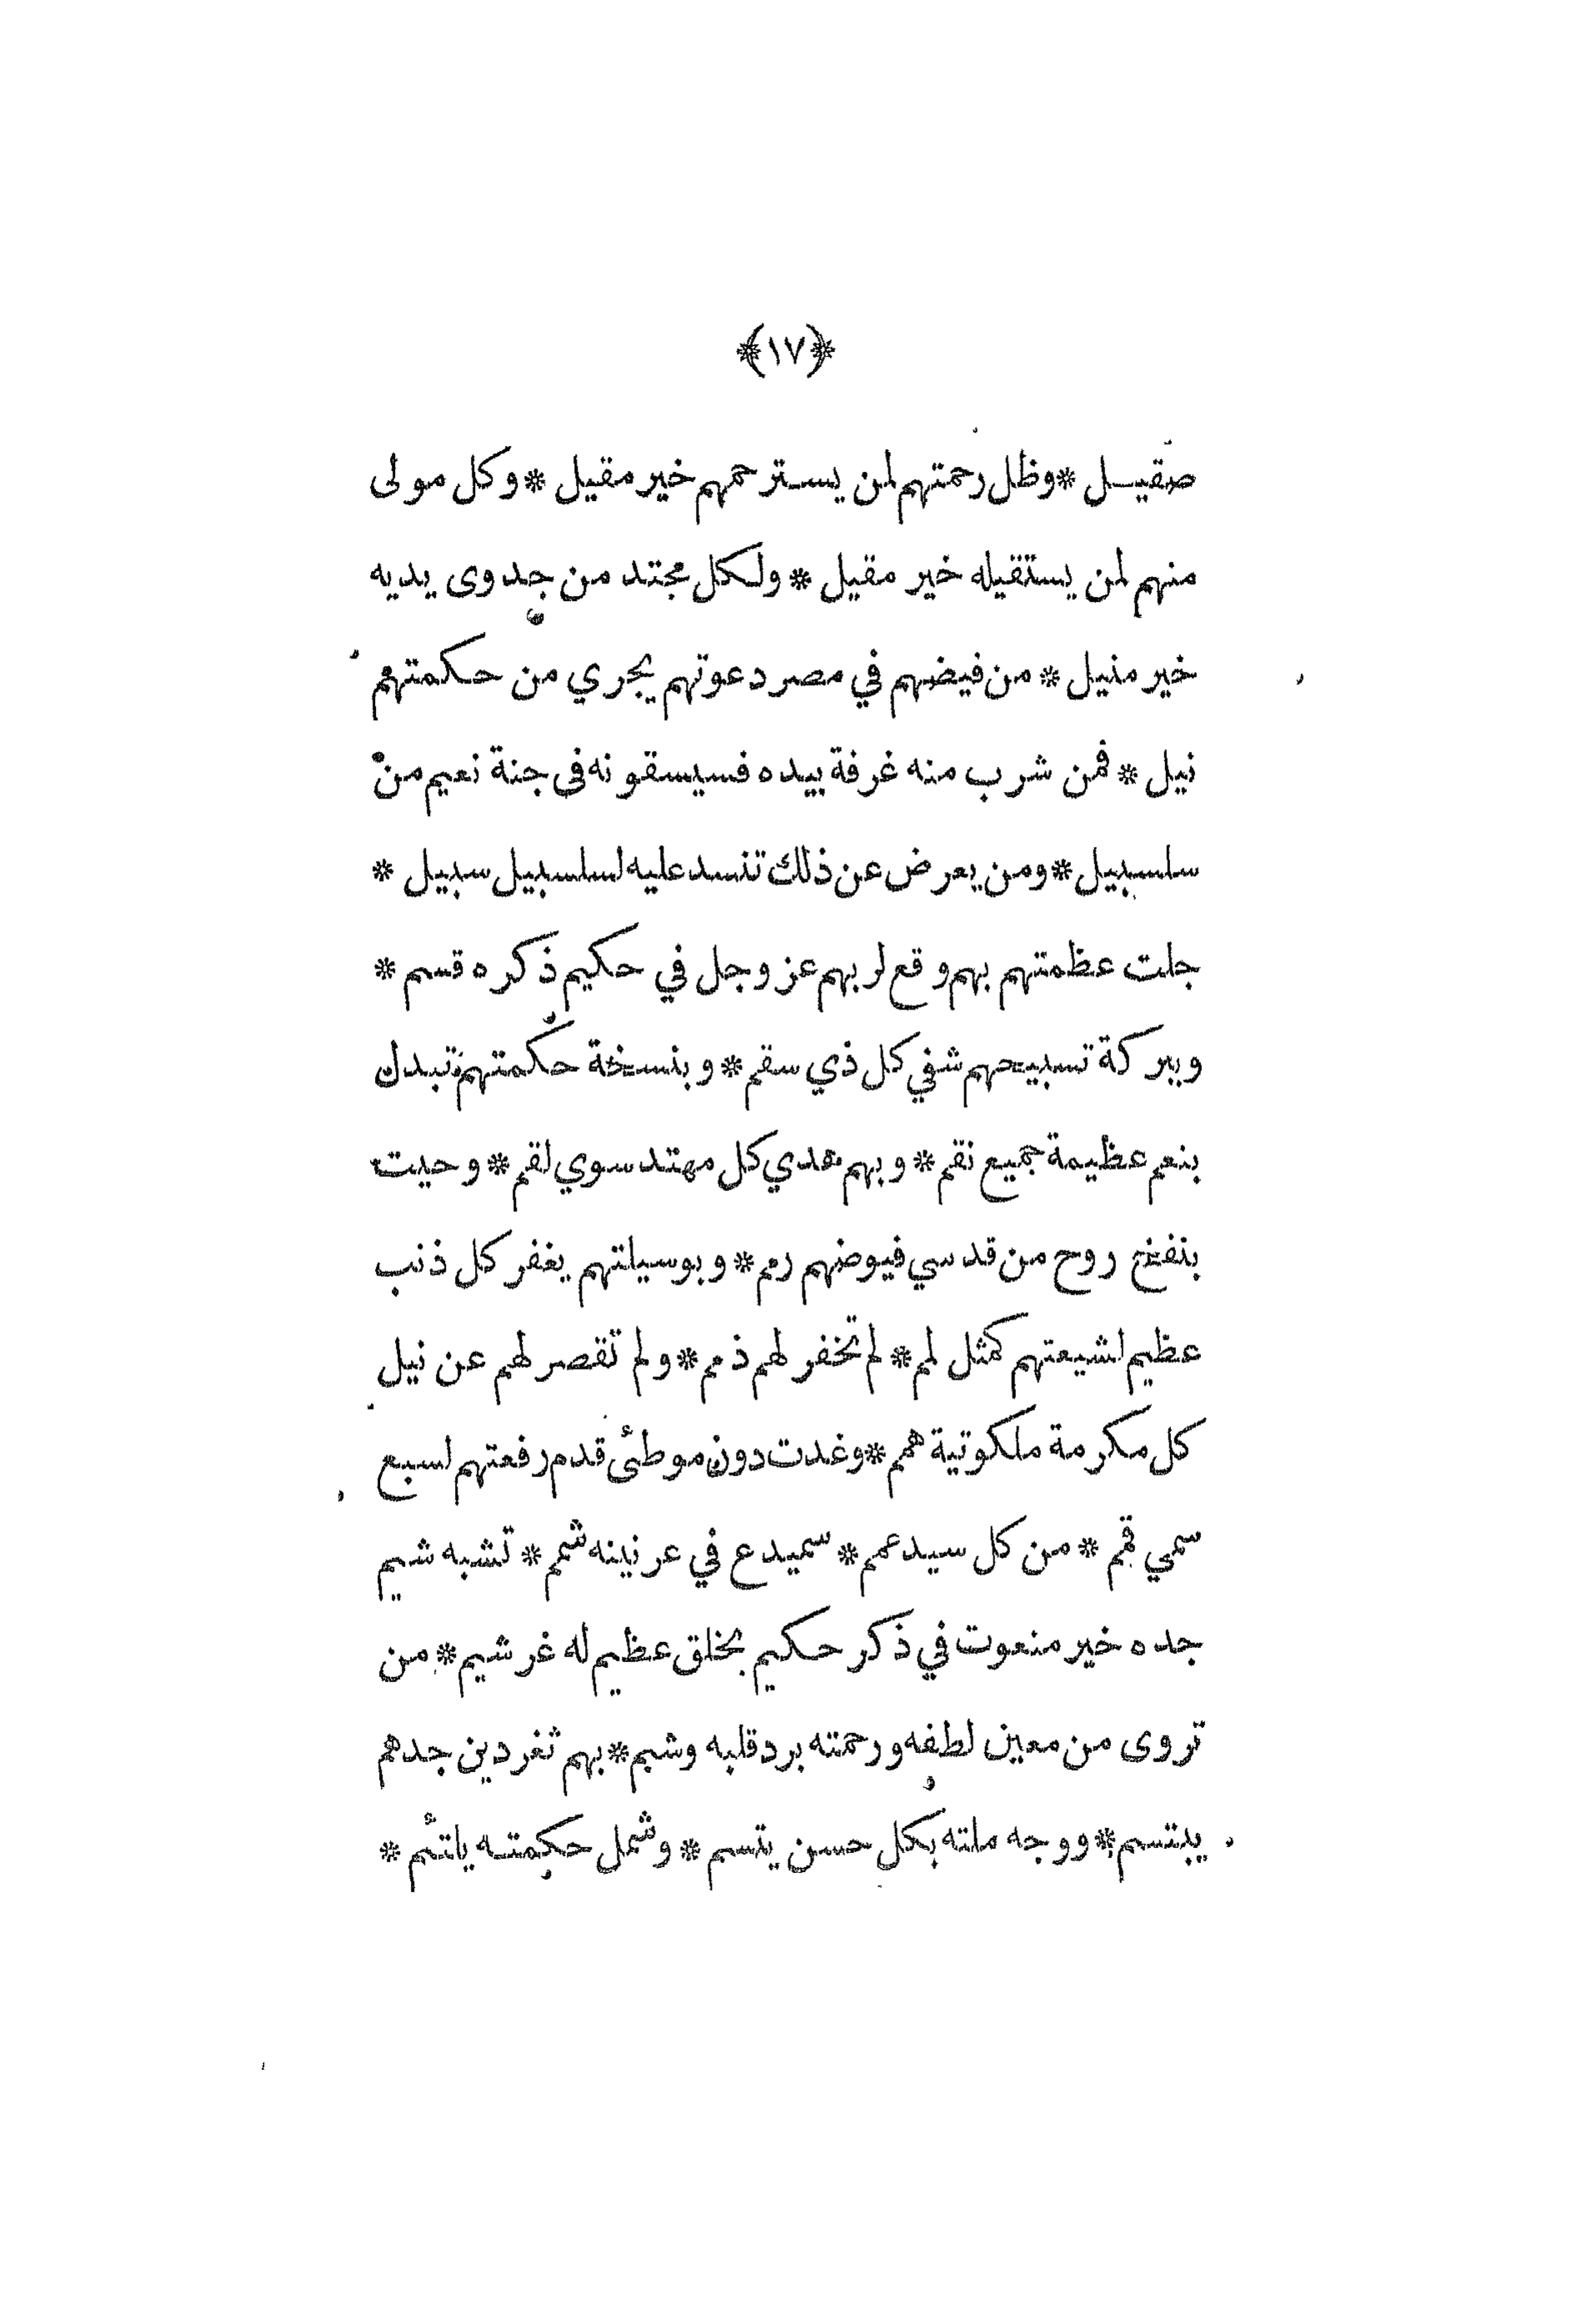 ﴿١٧﴾
صقيل * وظل رحمتهم لمن يسترحمهم خير مقيل * وكل مولى
منهم لمن يستقيله خير مقيل * ولكل مجتد من جدوى يديه
خير منيل * من فيضهم في مصر دعوتهم يجري من حكمتهم
نيل * فمن شرب منه غرفة بيده فسيسقونه فى جنة نعيم من
سلسبيل * ومن يعرض عن ذلك تنسد عليه لسلسبيل سبيل *
جلت عظمتهم بهم وقع لربهم عز وجل في حكيم ذكره قسم *
وببركة تسبيحهم شفي كل ذي سقم * وبنسخة حكمتهم تبدل
بنعم عظيمة جميع نقم * وبهم هدي كل مهتد سوي لقم * وحيت
بنفخ روح من قدسي فيوضهم رمم * وبوسيلتهم يغفر كل ذنب
عظيم لشيعتهم كمثل لمم * لم تخفر لهم ذمم * ولم تقصر لهم عن نيل
كل مكرمة ملكوتية همم * وغدت دون موطئ قدم رفعتهم لسبع
سمي قمم * من كل سيد عمم * سميدع في عرنينه شمم * تشبه شيم
جده خير منعوت في ذكر حكيم بخلق عظيم له غر شيم * من
تروى من معين لطفه ورحمته برد قلبه وشبم * بهم ثغر دين جدهم
يبتسم * ووجه ملته بكل حسن يتسم * وشمل حكمته يلتئم *